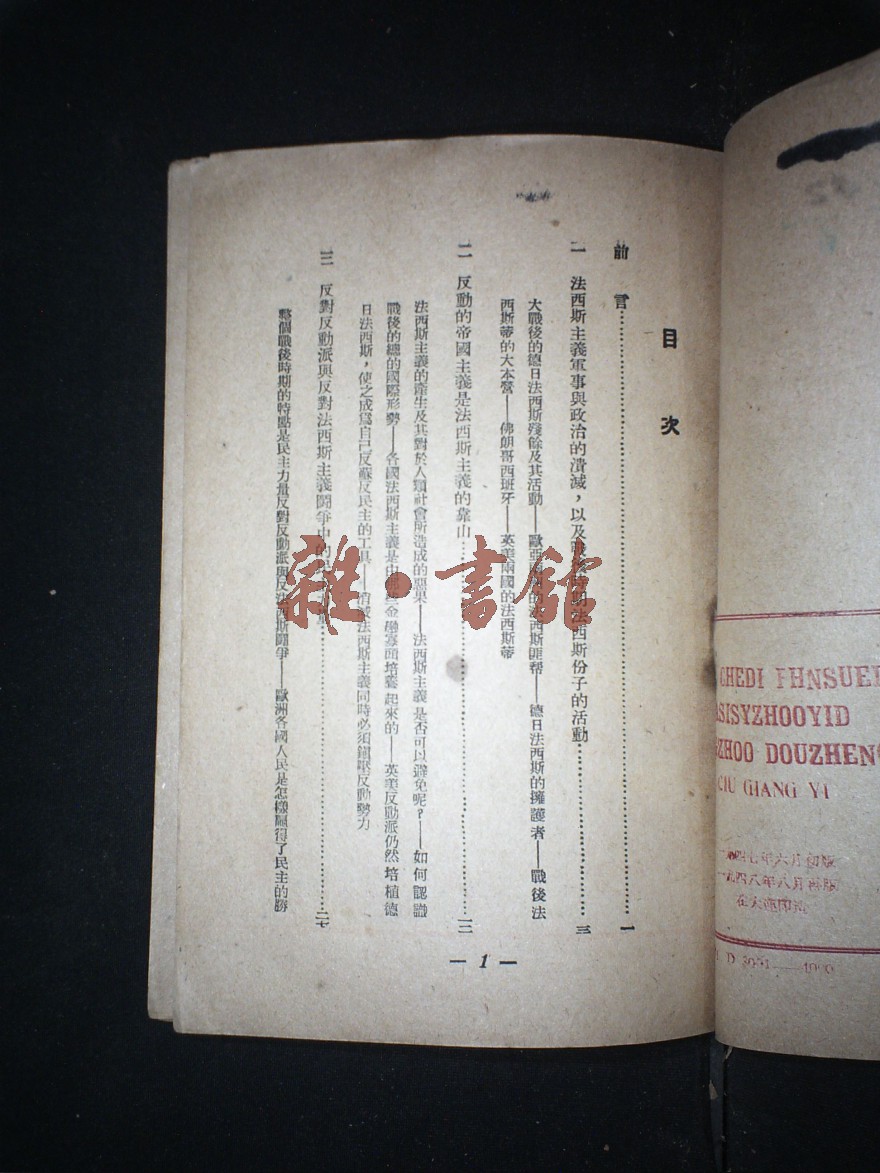 GHEDI FHNSUEI
ASISYZHOOYID
ZHOO DOUZHENG
CIU GIANG YI
一九四七年六月初版
一九四八年八月再版
在大連印造
D 3001——4000
目 次
前 言……一
一 法西斯主義軍事與政治的潰滅，以及戰後時期法西斯份子的活動……三
大戰後的德日法西斯殘餘及其活動——歐亞兩洲的法西斯匪幫——德日法西斯的擁護者——戰後法
西斯蒂的大本營——佛朗哥西班牙——英美兩國的法西斯蒂
二 反動的帝國主義是法西斯主義的靠山……一三
法西斯主義的產生及其對於人類社會所造成的惡果——法西斯主義是否可以避免呢？——如何認識
戰後的總的國際形勢——各國法西斯主義是由那些金融寡頭培養起來的——英美反動派仍然培植德
日法西斯，使之成爲自己反蘇反民主的工具——消滅法西斯主義同時必須鏟除反動勢力
三 反對反動派與反對法西斯主義鬪爭中的民……二十
整個戰後時期的特點是民主力量反對反動派與反法西斯鬪爭——歐洲各國人民是怎樣贏得了民主的勝
— 1 —
雜·書館